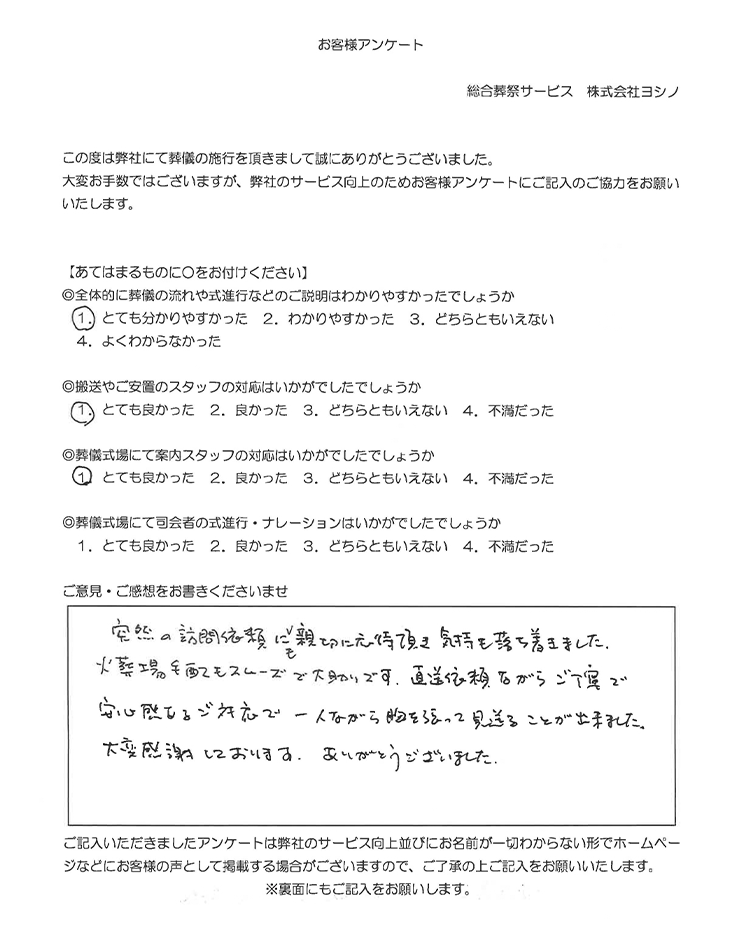 お客様アンケート
総合葬祭サービス　株式会社ヨシノ
この度は弊社にて葬儀の施行を頂きまして誠にありがとうございました。
大変お手数ではございますが、弊社のサービス向上のためお客様アンケートにご記入のご協力をお願い
いたします。
【あてはまるものに〇をお付けください】
◎全体的に葬儀の流れや式進行などのご説明はわかりやすかったでしょうか
1．とても分かりやすかった　2．わかりやすかった　3．どちらともいえない
4．よくわからなかった
◎搬送やご安置のスタッフの対応はいかがでしたでしょうか
1．とても良かった　2．良かった　3．どちらともいえない　4．不満だった
◎葬儀式場にて案内スタッフの対応はいかがでしたでしょうか
1．とても良かった　2．良かった　3．どちらともいえない　4．不満だった
◎葬儀式場にて司会者の式進行・ナレーションはいかがでしたでしょうか
1．とても良かった　2．良かった　3．どちらともいえない　4．不満だった
ご意見・ご感想をお書きくださいませ
突然の訪問依頼にも親切に応待頂き気持も落ち着きました。
火葬場手配てもスムーズで大助りです。直送依頼ながらご丁寧で
安心感あるご対応で一人ながら胸を張って見送ることが出来ました。
大変感謝しております。ありがとうございました。
ご記入いただきましたアンケートは弊社のサービス向上並びにお名前が一切わからない形でホームペー
ジなどにお客様の声として掲載する場合がございますので、ご了承の上ご記入をお願いいたします。
※裏面にもご記入をお願いします。